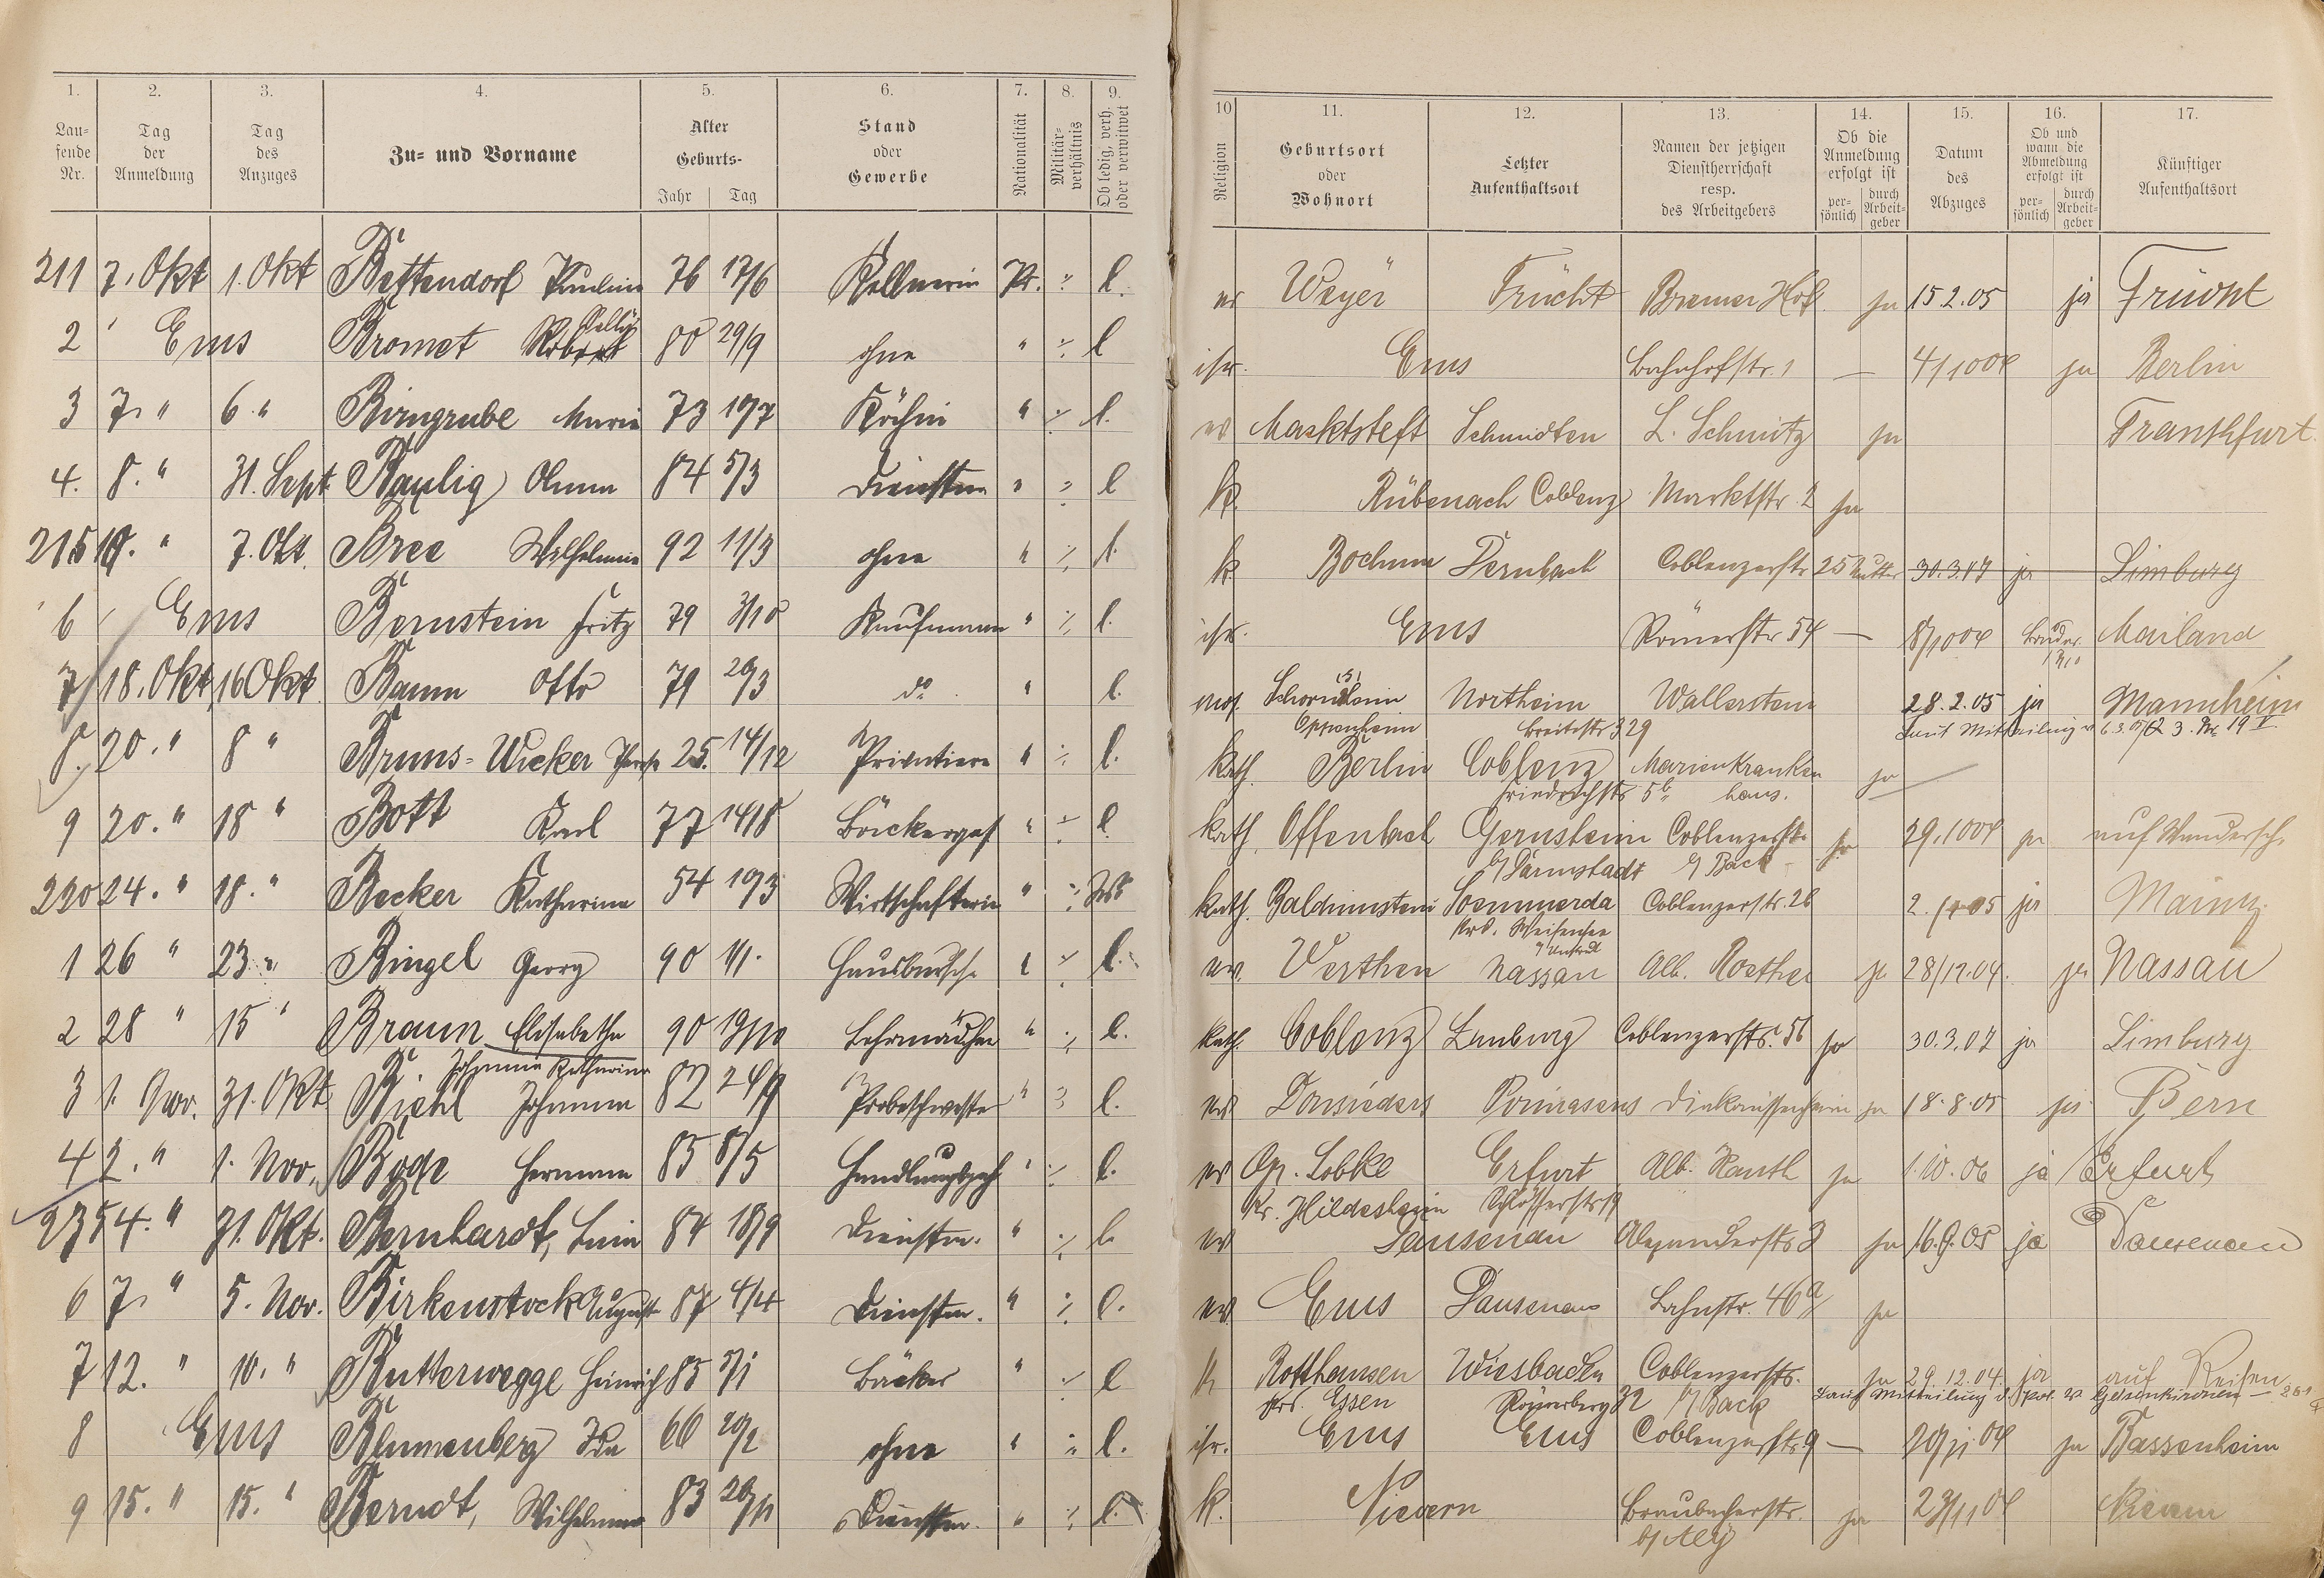 1. 2. 3. 4. 5. 6. 7. 8. 9.
Lau-
fende
Nr.
Tag
der
Anmeldung
Tag
des
Anzuges
Zu- und Vorname
Alter
Geburts-
Jahr Tag
Stand
oder
Gewerbe
Nationalität
Militär-
verhältnis
Ob ledig, verh.
oder verwitwet
10 11. 12. 13. 14. 15. 16. 17.
Religion
Geburtsort
oder
Wohnort
Letzter
Aufenthaltsort
Namen der jetzigen
Dienstherrschaft
resp.
des Arbeitgebers
Ob die
Anmeldung
erfolgt ist
per-
sönlich
durch
Arbeit-
geber
Datum
des
Abzuges
Ob und
wann die
Abmeldung
erfolgt ist
per-
sönlich
durch
Arbeit-
geber
Künftiger
Aufenthaltsort
211 7. Okt 1. Okt Bettendorf Pauline 76 17/6 Kellnerin Pr. ./. l. ev Weyer Frücht Bremer Hof ja 15 2.05 ja Frücht
2 Ems Bromet 80 29/9 ohne " ./. l isr. Ems Bahnhofstr. 1 — 4/10 04 ja Berlin
3 7. " 6. " Birngrube Maria 73 Köchin " ./. l. ev Marktsteft L. Schmitz ja Frankfurt
4. 8. " 31. Sept Paulig Anna 84 5/3 Dienstm " ./. l k. Rübenach Coblenz Marktstr. 2 ja
215 " 7. Okt. Bree Wilhelmine 92 11/3 ohne " ./. l. k. Bochum Dernbach Coblenzerstr 25 Mutter 30.3.07 ja Limburg
6 Ems Bernstein Fritz 79 3/10 Kaufmann " ./. l. isr. Ems Römerstr 54 — 8/10 04 Bruder Mailand
7 18. Okt 16 Okt Baum Otto 79 20/3 do " l. mos. Northeim Wallerstein 28.2.05 ja Mannheim
Oppenheim Breitestr 329 Laut Mitteilung v.
8. 20. " 8 " Bruns-Wicker 25. 14/12 Privatiere " ./. l. kath. Berlin Coblenz Marienkranken ja
Friedrichstr haus.
9 20. " 18 " Bott Karl 77 14/8 Bäckerges " ./. l. kath. Offenbach Gernsheim Coblenzerstr. ja 29.10 04 ja auf Wandersch.
b/ Darmstadt b/ Back
220 24. " 18. " Becker Katharina 54 Wirtschafterin " ./. kath. Balduinstein Soemmerda Coblenzerstr. 26 ja Mainz.
Krs. Weißensee
1 26 " 23. " Bingel Georg 90 1/1. Hausbursche " ./. l. ev. Nassau Alb. Roether ja 28/12.04. ja Nassau
2 28 " 15 " Braun Elisabetha 90 19/10 Lehrmädchen " ./. l. kath. Coblenz Limburg Coblenzerstr. 56 ja 30.3.07 ja Limburg
Johanna Katharina
3 1. Nov. 31. Okt Biehl Johanna 82 24/9 Probeschwester " l. ev Donsieders Pirmasens ja 18.8.05 ja Bern
4 2. " 1. Nov. Bode Hermann 85 8/5 Handlungsgeh " ./. l. ev Gr. Lobke Erfurt Alb. Kauth ja 1.10.06 ja Erfurt
Kr. Hildesheim Schlösserstr 19
225 4. " 31. Okt. Bernhardt, 84 18/9 Dienstm. " ./. l. ev Dausenau Alexanderstr 3 ja 16.9.05 ja Dausenau
6 7. " 5. Nov. Birkenstock Auguste 87 4/4 Dienstm. " ./. l. ev. Ems Dausenau Bahnstr. 46a ja
7 12. " 10. " Butterwegge Heinrich 85 5/1 Bäcker " ./. l k Rotthausen Wiesbaden Coblenzerstr. ja 29.12.04. ja auf Reisen
Krs. Essen Römerberg 32 b/ Back Laut Mitteilung d. Gelsenkirchen
8 Ems Blumenberg Ida 66 20/2 ohne " ./. l. isr. Ems Ems Coblenzerstr. 9 — 20/11 04 ja Bassenheim
9 15. " 15. " Berndt, Wilhelmine 83 Dienstm. " ./. l. k. Nievern Braubacherstr. ja 23/11 04 Nievern